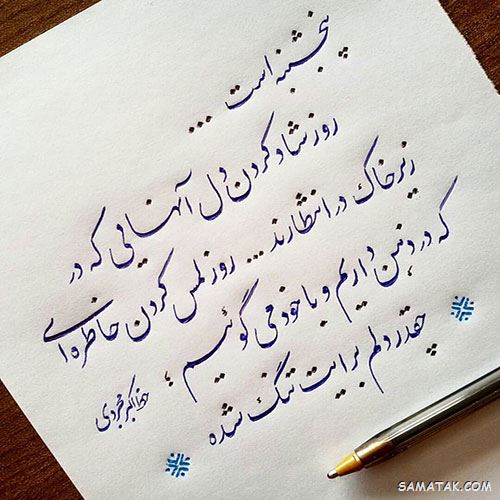 پنجشنبه است ...
روز شاد کردن دل آنهایی که در
زیر خاک در انتظارند ... روز لمس کردن خاطره‌ای
که در ذهن داریم و با خود می گوئیم ؛
چقدر دلم برایت تنگ شده
SAMATAK.COM